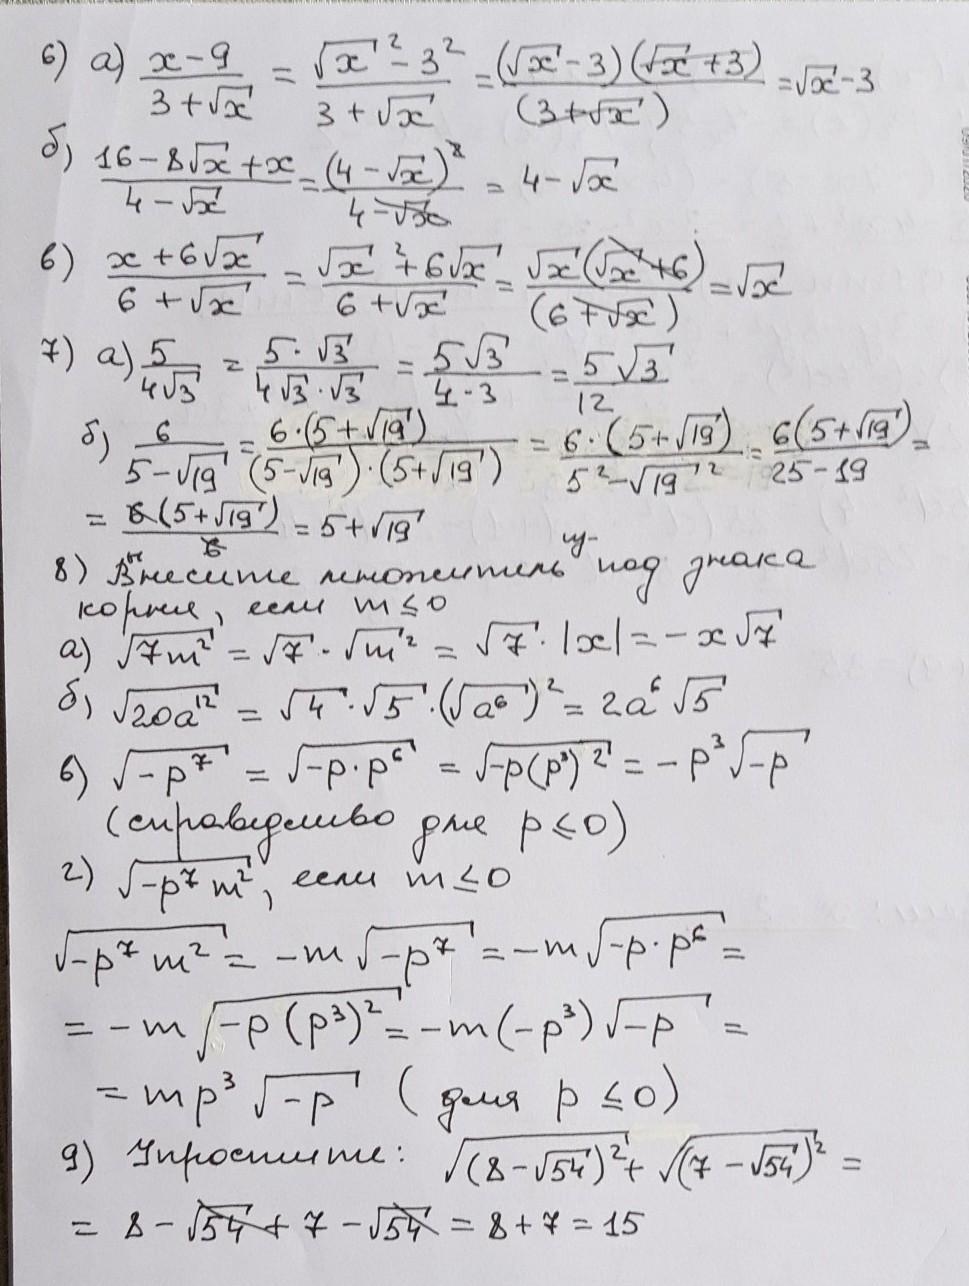 6) а) (x-9)/(3+√x) = (√x² - 3²)/(3+√x) = ((√x-3)(√x+3))/((3+√x)) = √x-3
б) (16-8√x+x)/(4-√x) = (4-√x)²/(4-√x) = 4-√x
в) (x+6√x)/(6+√x) = (√x²+6√x)/(6+√x) = (√x(√x+6))/((6+√x)) = √x
7) а) 5/(4√3) = (5·√3)/(4√3·√3) = (5√3)/(4·3) = (5√3)/12
б) 6/(5-√19) = (6·(5+√19))/((5-√19)·(5+√19)) = (6·(5+√19))/(5²-√19²) = (6(5+√19))/(25-19) =
= (6(5+√19))/6 = 5+√19
8) Вынесите множитель из-под знака
корня, если m≤0
а) √(7m²) = √7·√m² = √7·|x| = -x√7
б) √(20a¹²) = √4·√5·(√a⁶)² = 2a⁶√5
в) √(-p⁷) = √(-p·p⁶) = √(-p(p³)²) = -p³√(-p)
(справедливо для p≤0)
г) √(-p⁷m²), если m≤0
√(-p⁷m²) = -m√(-p⁷) = -m√(-p·p⁶) =
= -m√(-p(p³)²) = -m(-p³)√(-p) =
= mp³√(-p) (для p≤0)
9) Упростите: √((8-√54)²) + √((7-√54)²) =
= 8-√54+7-√54 = 8+7 = 15